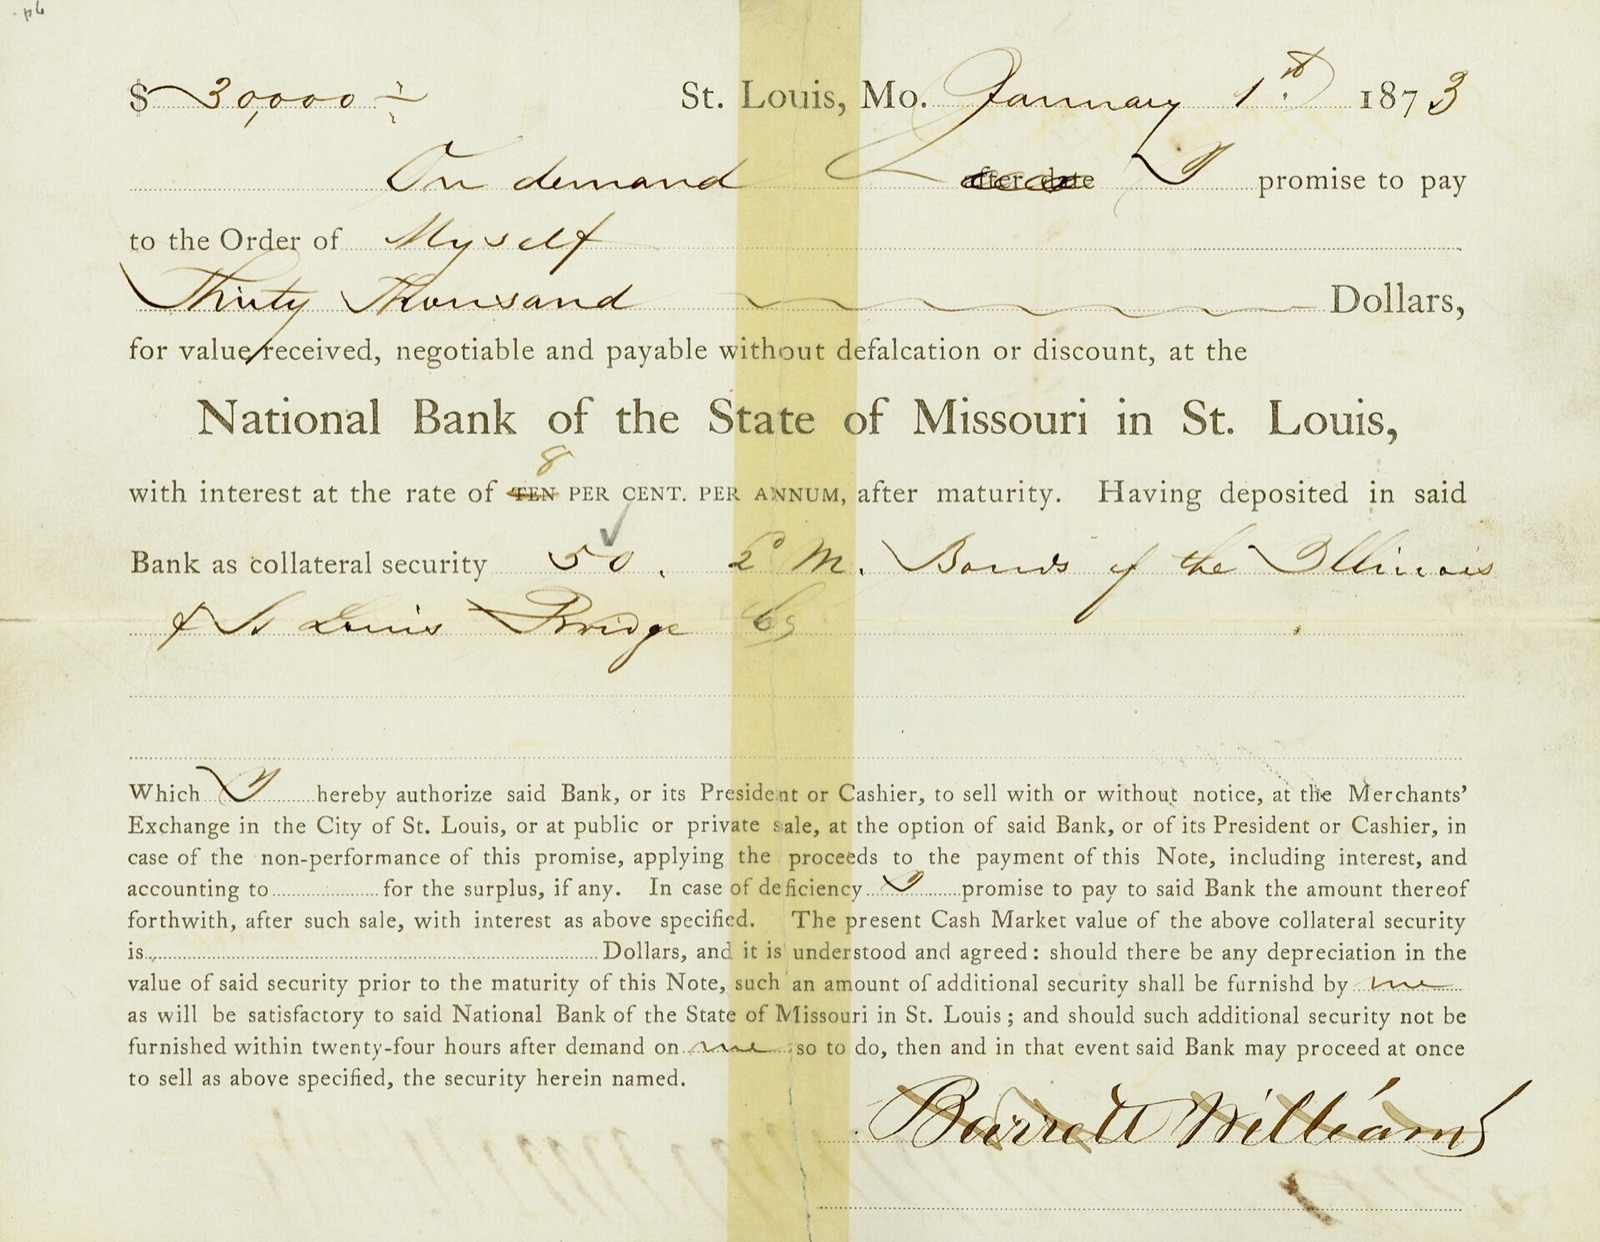 $ 30,000 — St. Louis, Mo. January 1st 1873
On demand after date I promise to pay
to the Order of Myself
Thirty Thousand Dollars,
for value received, negotiable and payable without defalcation or discount, at the
National Bank of the State of Missouri in St. Louis,
8
with interest at the rate of TEN PER CENT. PER ANNUM, after maturity. Having deposited in said
Bank as collateral security 50. 2d M. Bonds of the Illinois
& St Louis Bridge Co
Which I hereby authorize said Bank, or its President or Cashier, to sell with or without notice, at the Merchants'
Exchange in the City of St. Louis, or at public or private sale, at the option of said Bank, or of its President or Cashier, in
case of the non-performance of this promise, applying the proceeds to the payment of this Note, including interest, and
accounting to for the surplus, if any. In case of deficiency I promise to pay to said Bank the amount thereof
forthwith, after such sale, with interest as above specified. The present Cash Market value of the above collateral security
is Dollars, and it is understood and agreed: should there be any depreciation in the
value of said security prior to the maturity of this Note, such an amount of additional security shall be furnishd by me
as will be satisfactory to said National Bank of the State of Missouri in St. Louis; and should such additional security not be
furnished within twenty-four hours after demand on me so to do, then and in that event said Bank may proceed at once
to sell as above specified, the security herein named.
Barrett Williams